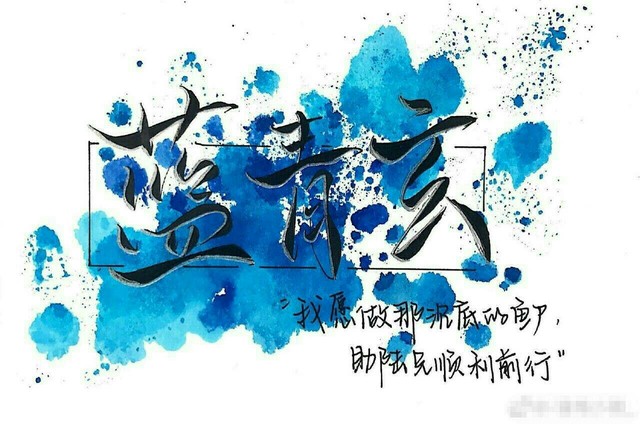 蓝青玄
"我愿做那沉底的,
助陆兄顺利前行"